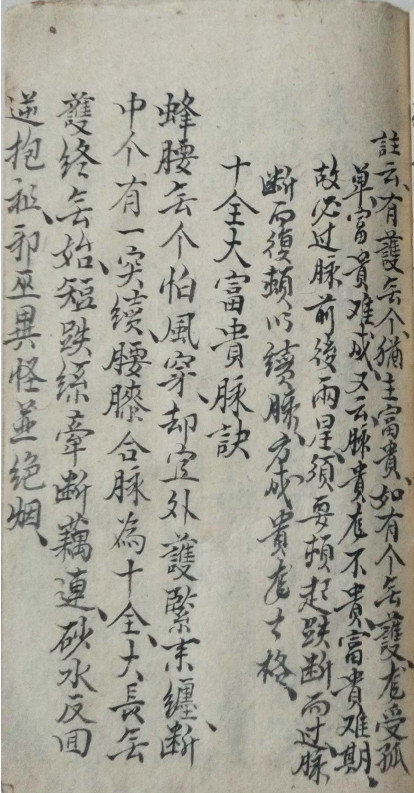 註云有護無个猶主富貴、如有个無護、龙受孤
单、富貴难成、又云脉貴龙不貴、富貴难期、
故必过脉前後兩星、須要頓起跌断而过脉、
断而復頓以續脉、方成貴龙士格、
十全大富貴脉訣
蜂腰無个怕風穿、却宜外護緊来纏、断
中个有一突續、腰膝合脉為十全、大長無
護終無始、短跌絲牽断藕連、砂水反回
逆抱祖、邪巫異怪並绝烟、